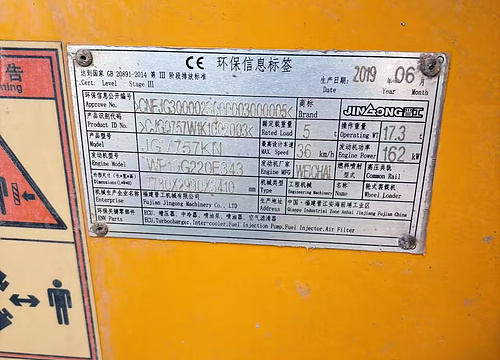 告
ning
CE 环保信息标签
达到国家 GB 20891-2014 第 III 阶段排放标准
Cert. Level Stage III
生产日期: 2019 年 06 月
Date Year Month
环保信息公开编号
Approve No.
商标
Brand
JINGONG 晋工
产品识别代码
Product ID No.
额定载重量
Rated Load
5 t
操作重量
Operating WT
17.3 t
产品型号
Model
JG757KN
最高设计车速
MAX Speed
36 km/h
发动机功率
Engine Power
162 kW
发动机型号
Engine Model
WP10G220E343
发动机厂家
Engine MFG
WEICHAI
燃料喷射型式
高压共轨
Common Rail
外形尺寸(长×宽×高)
Dimensions(L×W×H)
mm
机械类型
Type
工程机械
Engineering Machinery
名称
Name
轮式装载机
Wheel Loader
环保生产企业
Enterprise
福建晋工机械有限公司
Fujian Jingong Machinery Co., LTD
生产地址
Address
中国·福建晋江安海前埔工业区
Qianpu Industrial Zone Anhai Jinjiang Fujian China
环保关键零部件
ENV Parts
ECU, 增压器, 中冷器, 喷油泵, 喷油器, 空气滤清器
ECU, Turbocharger, Inter-cooler, Fuel Injection Pump, Fuel Injector, Air Filter